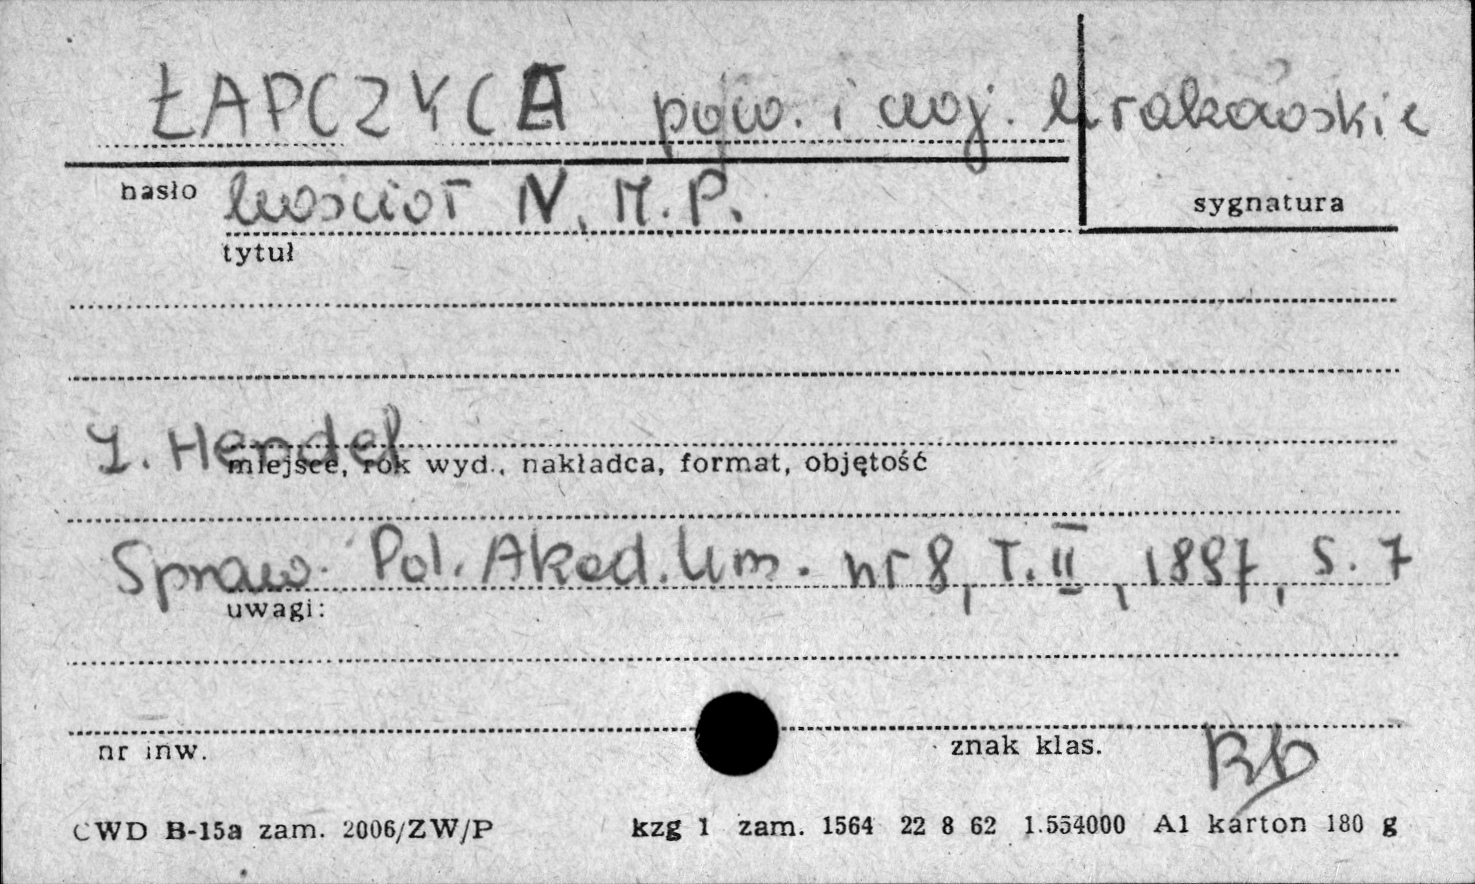 ŁAPCZYCA pow. i woj. krakowskie
hasło
sygnatura
kościoł N. M. P.
tytuł
Z. Hendel
miejsce, rok wyd., nakładca, format, objętość
Spraw. Pol. Akad. Um. nr 8, T. II, 1897, S. 7
uwagi:
nr inw.
znak klas.
CWD B-15a zam. 2006/ZW/P kzg 1 zam. 1564 22 8 62 1.554000 A1 karton 180 g